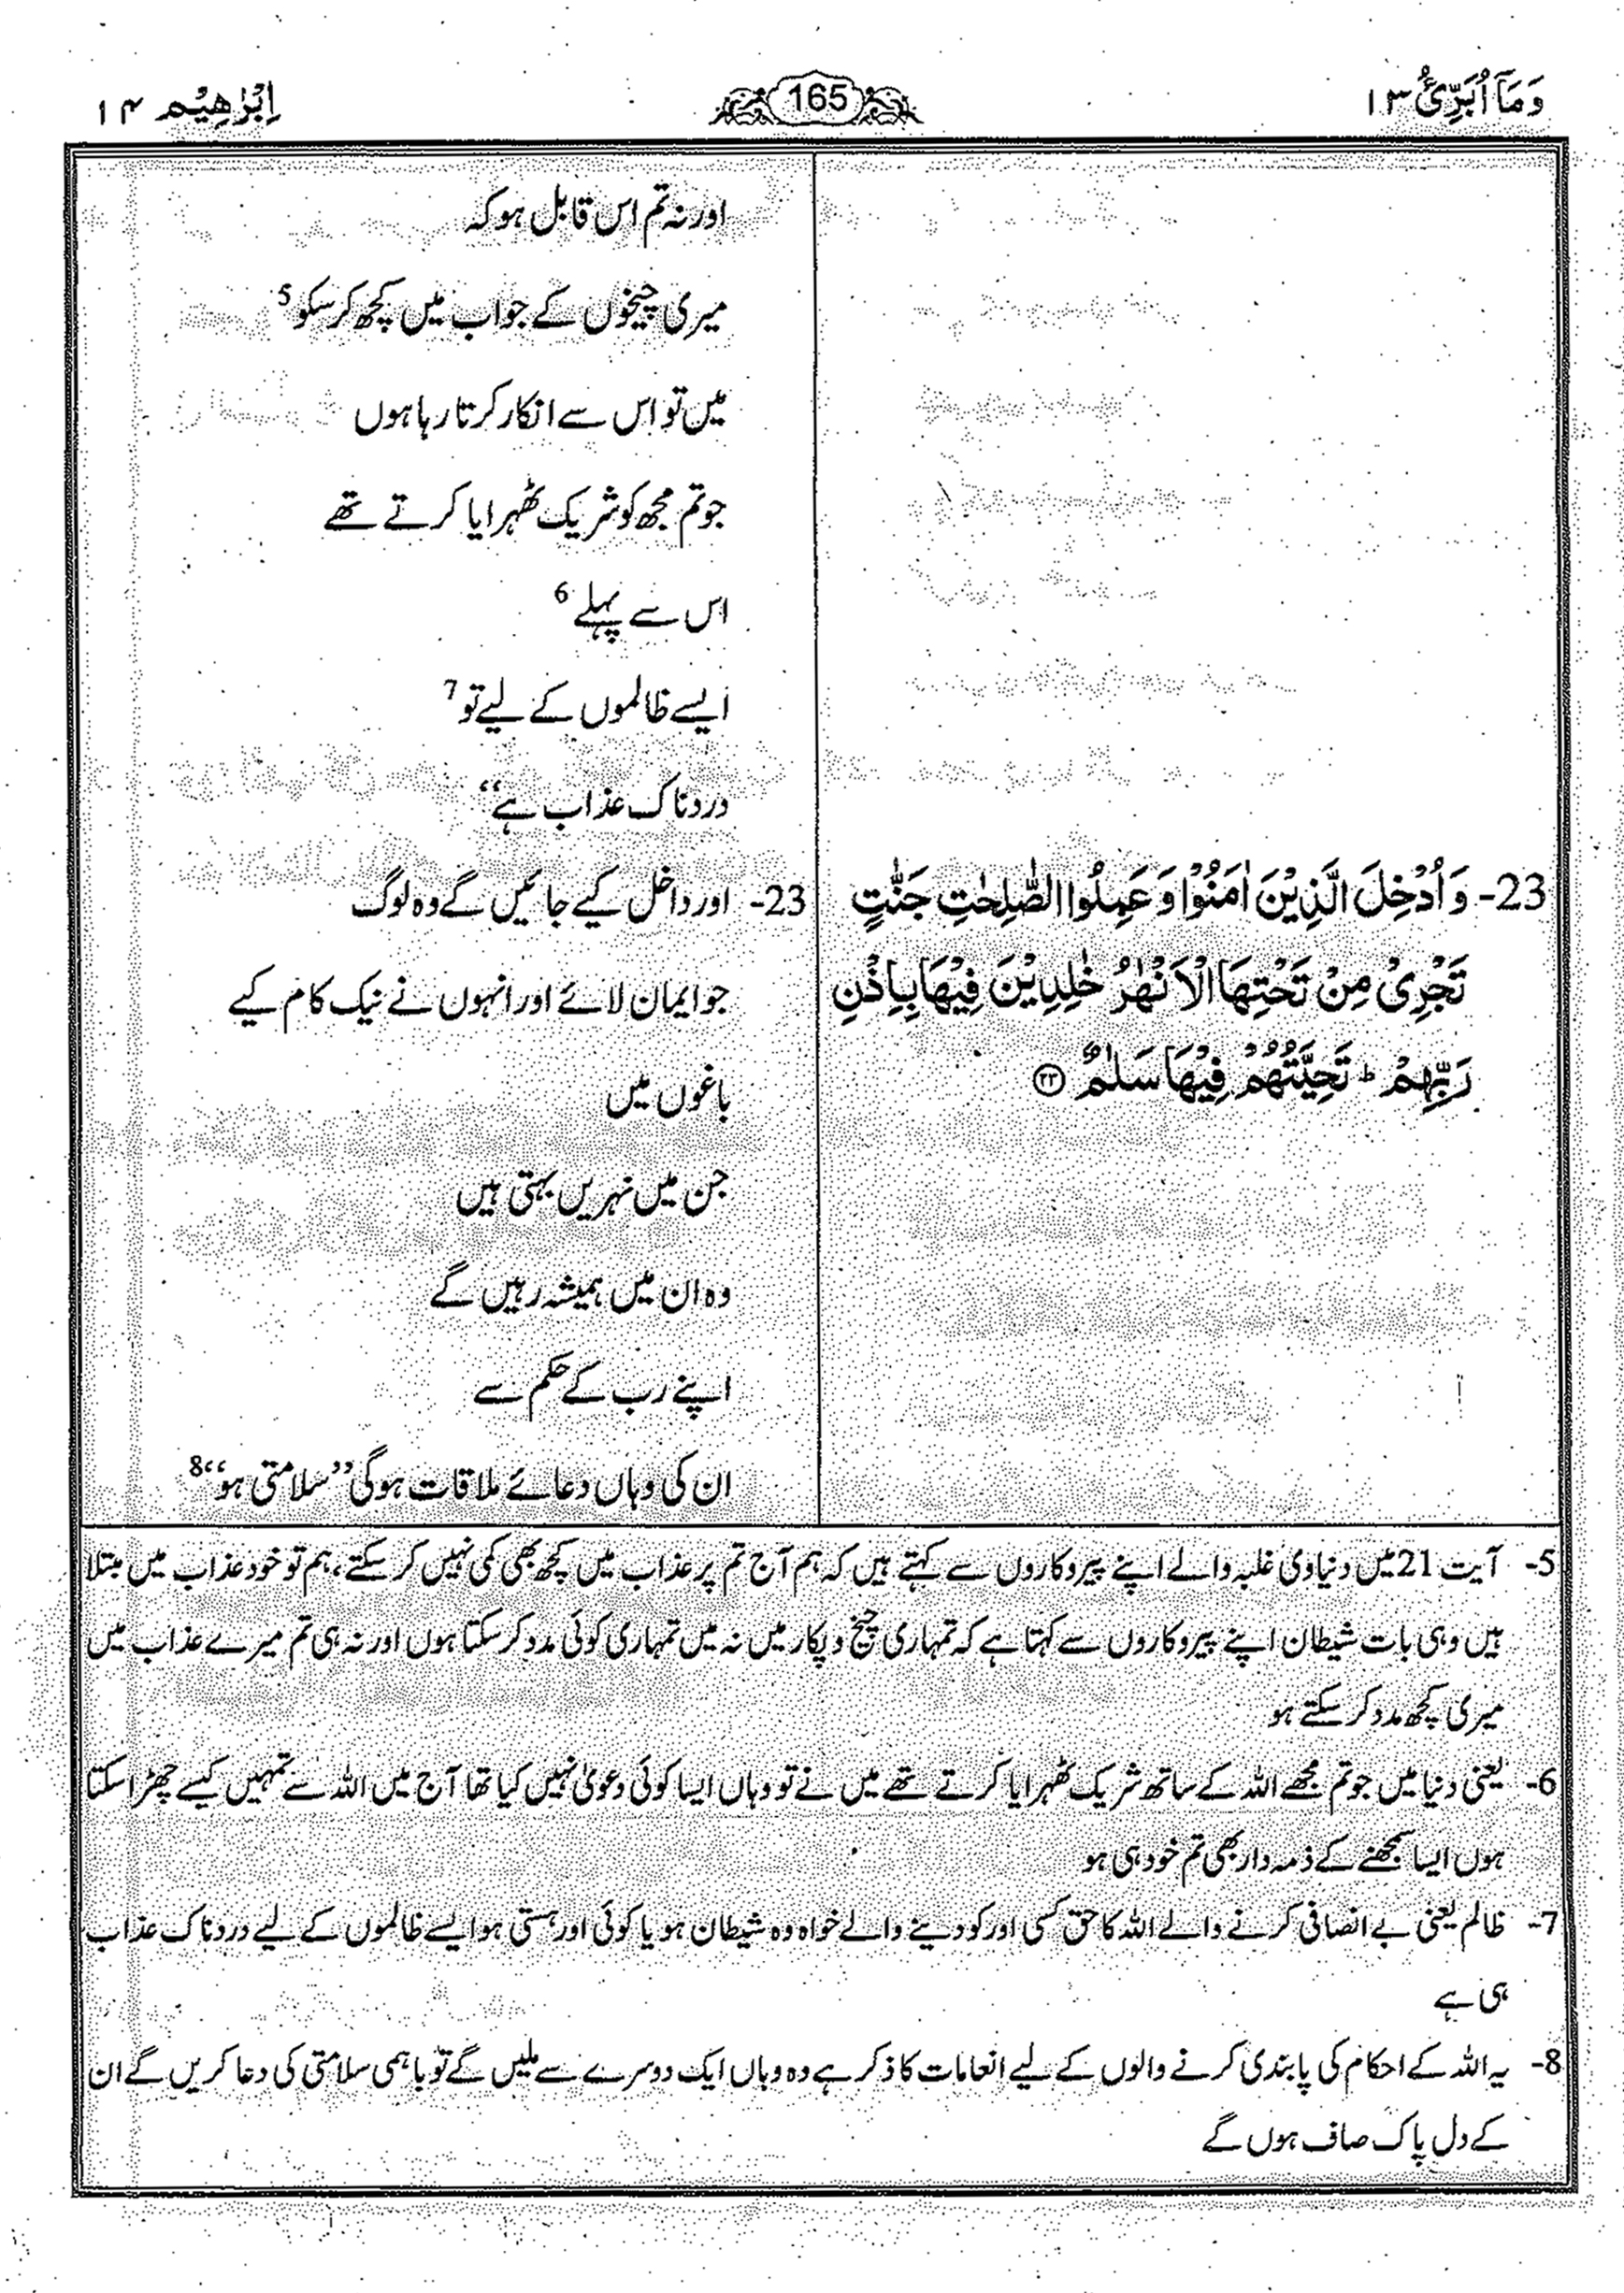 وَمَآ اُبَرِّئُ ۱۳
165
اِبْرٰهِيْم ۱۴
اور نہ تم اس قابل ہو کہ
میری چیخوں کے جواب میں کچھ کر سکو 5
میں تو اس سے انکار کرتا رہا ہوں
جو تم مجھ کو شریک ٹھہرایا کرتے تھے
اس سے پہلے 6
ایسے ظالموں کے لیے تو 7
دردناک عذاب ہے“
23- وَاُدْخِلَ الَّذِيْنَ اٰمَنُوْا وَعَمِلُوا الصّٰلِحٰتِ جَنّٰتٍ
تَجْرِیْ مِنْ تَحْتِهَا الْاَنْهٰرُ خٰلِدِيْنَ فِيْهَا بِاِذْنِ
رَبِّهِمْ ؕ تَحِيَّتُهُمْ فِيْهَا سَلٰمٌ ۲۳
23- اور داخل کیے جائیں گے وہ لوگ
جو ایمان لائے اور انہوں نے نیک کام کیے
باغوں میں
جن میں نہریں بہتی ہیں
وہ ان میں ہمیشہ رہیں گے
اپنے رب کے حکم سے
ان کی وہاں دعائے ملاقات ہوگی ”سلامتی ہو“ 8
5- آیت 21 میں دنیاوی غلبہ والے اپنے پیروکاروں سے کہتے ہیں کہ ہم آج تم پر عذاب میں کچھ بھی کمی نہیں کر سکتے، ہم تو خود عذاب میں مبتلا
ہیں وہی بات شیطان اپنے پیروکاروں سے کہتا ہے کہ تمہاری چیخ و پکار میں نہ میں تمہاری کوئی مدد کر سکتا ہوں اور نہ ہی تم میرے عذاب میں
میری کچھ مدد کر سکتے ہو
6- یعنی دنیا میں جو تم مجھے اللہ کے ساتھ شریک ٹھہرایا کرتے تھے میں نے تو وہاں ایسا کوئی دعویٰ نہیں کیا تھا آج میں اللہ سے تمہیں کیسے چھڑا سکتا
ہوں ایسا سمجھنے کے ذمہ دار بھی تم خود ہی ہو
7- ظالم یعنی بے انصافی کرنے والے اللہ کا حق کسی اور کو دینے والے خواہ وہ شیطان ہو یا کوئی اور ہستی ہو ایسے ظالموں کے لیے دردناک عذاب
ہی ہے
8- یہ اللہ کے احکام کی پابندی کرنے والوں کے لیے انعامات کا ذکر ہے وہ وہاں ایک دوسرے سے ملیں گے تو باہمی سلامتی کی دعا کریں گے ان
کے دل پاک صاف ہوں گے